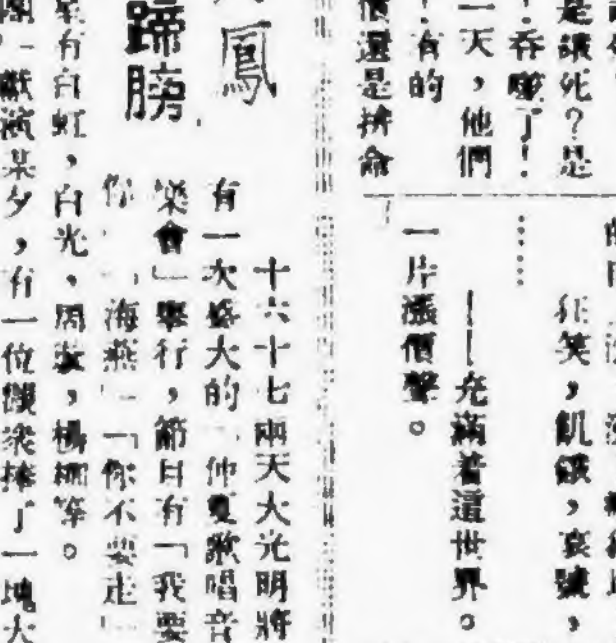 是讓死？是
！吞嚥了！
一天，他們
！有的
價還是拚命
狂笑，飢餓，哀號，
……
——充滿着這世界。
一片漲價聲。
鳳
蹄膀
十六十七兩天大光明將
有一次盛大的「仲夏歌唱音
樂會」舉行，節目有「我要
你」「海燕」「你不要走」
有白虹，白光，周璇，楊柳等。
獻演某夕，有一位觀衆捧了一塊大